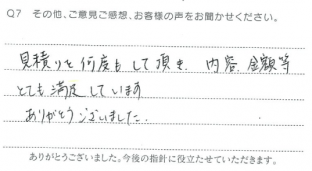 Q7 その他、ご意見ご感想、お客様の声をお聞かせください。
見積りを何度もして頂き、内容、金額等
とても満足しています
ありがとうございました。
ありがとうございました。今後の指針に役立たせていただきます。